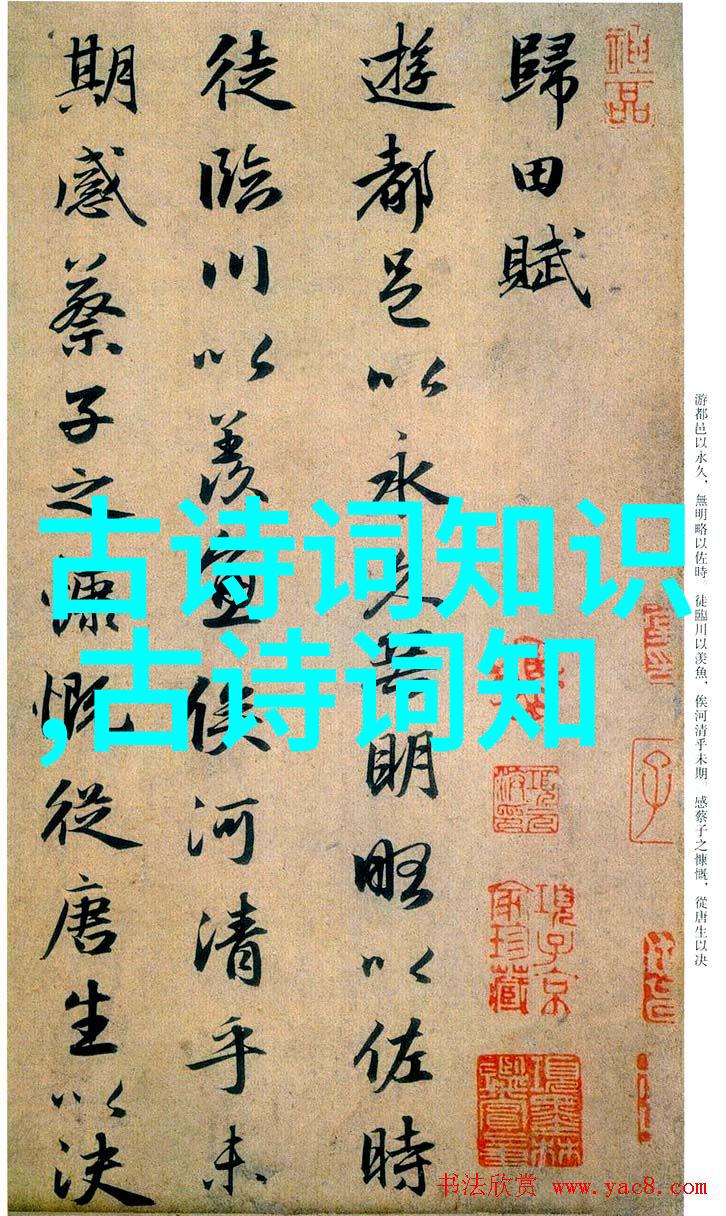 神品
歸田賦
遊都邑以永久無明略以佐時
徒臨川以羨魚俟河清乎未
期感蔡子之慷慨從唐生以決
古诗词知识
,古诗词知
游都邑以永久，無明略以佐時。徒臨川以羨魚，俟河清乎未期。感蔡子之慷慨，從唐生以决
項子京家珍藏
項墨林鑑賞章
书法欣赏 www.yac8.com